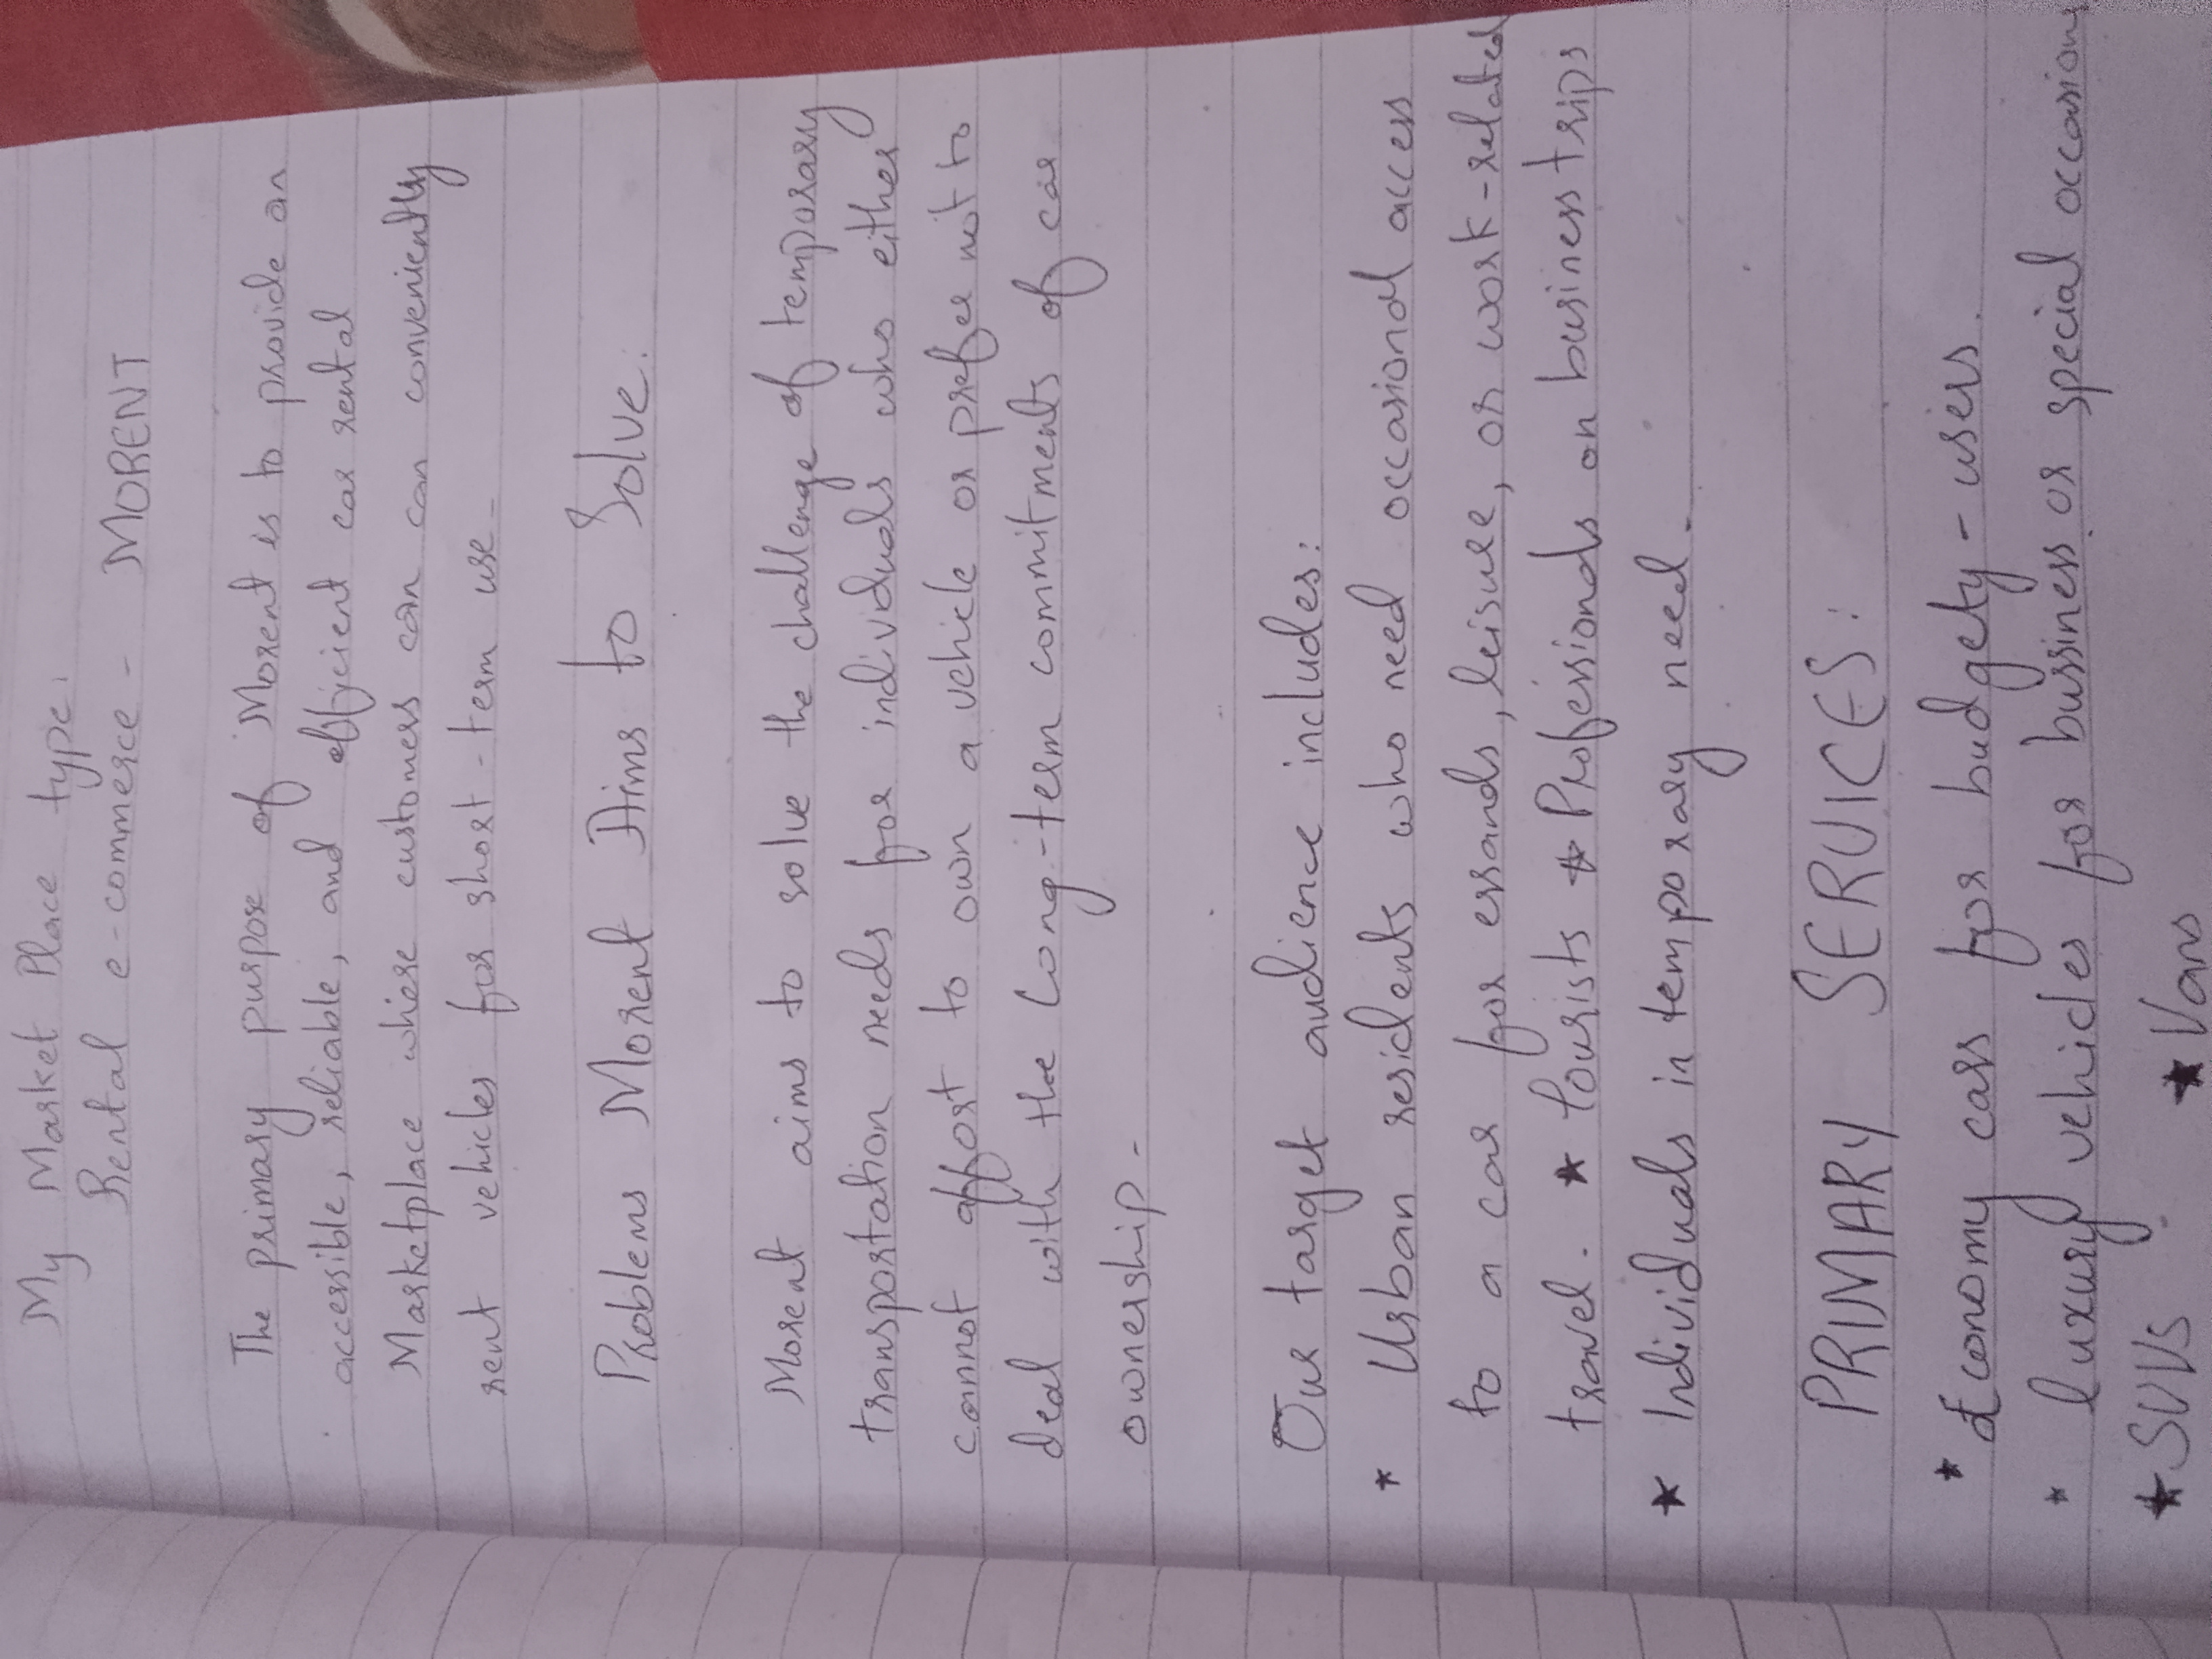 My Market Place type:
Rental e-commerce - MORENT
The primary purpose of Morent is to provide an
accessible, reliable, and efficient car rental
Marketplace where customers can can conveniently
rent vehicles for short-term use-
Problems Morent Aims to Solve:
Morent aims to solve the challenge of temporary
transportation needs for individuals who either
cannot affort to own a vehicle or prefer not to
deal with the long-term commitments of car
ownership-
Our target audience includes:
* Urban residents who need occasional access
to a car for errands, leisure, or work-related
travel. * Tourists * Professionals on business trips
* Individuals in temporary need.
PRIMARY SERVICES:
* Economy cars for budgety-users.
* luxury vehicles for bussiness or special occasion
* SUVs * Vans